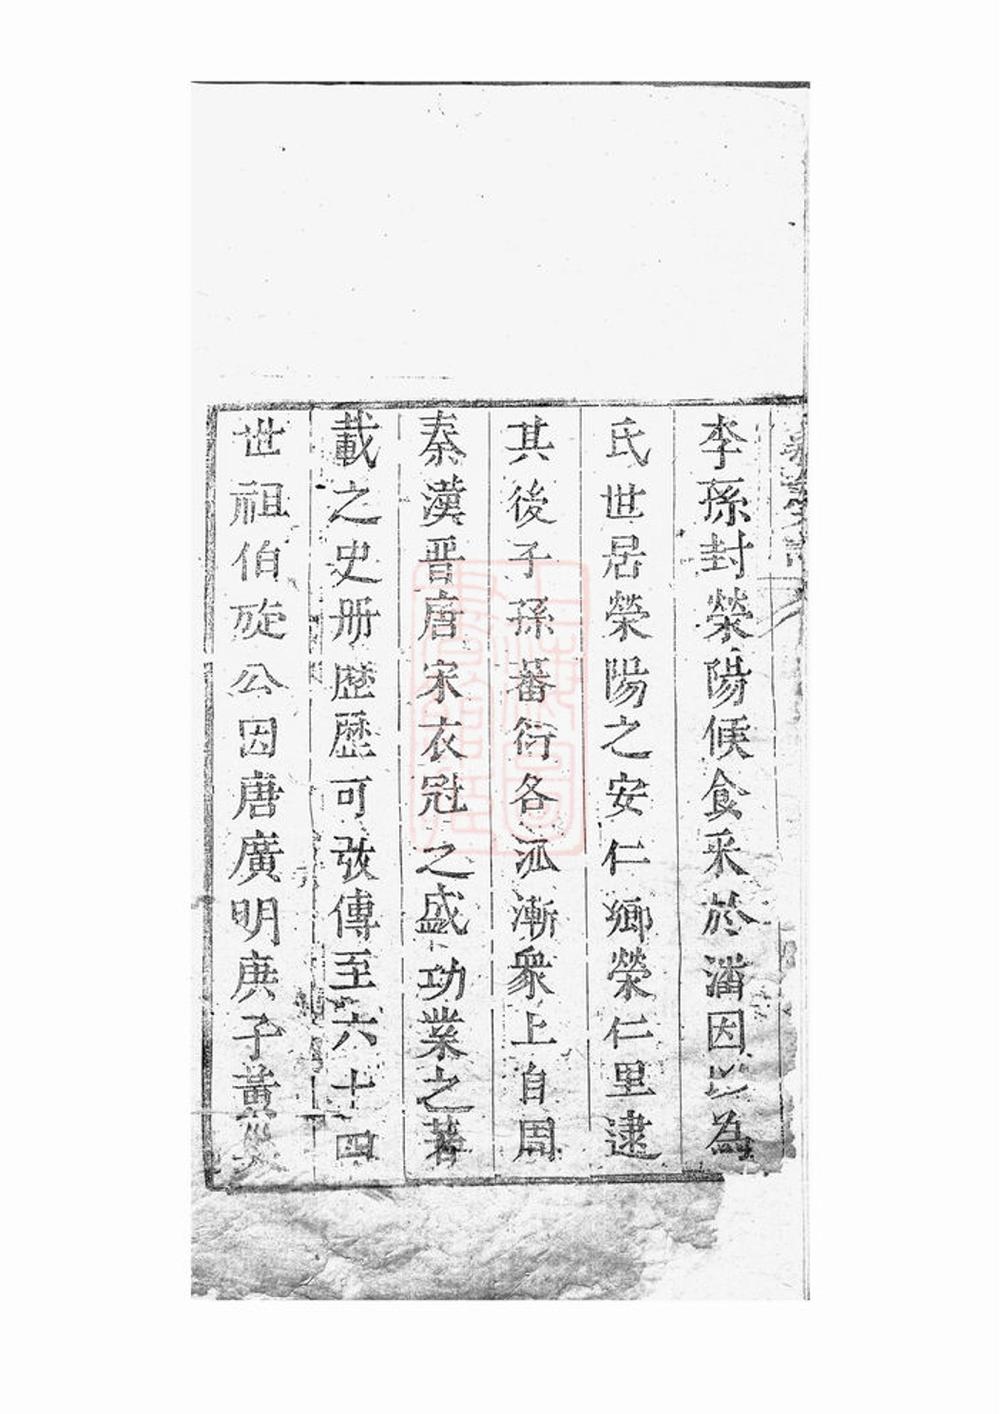 李孫封滎陽侯食采於潘因以為
氏世居滎陽之安仁鄉榮仁里逮
其後子孫蕃衍各泒漸衆上自周
秦漢晋唐宋衣冠之盛功業之著
載之史册歴歴可攷傳至六十四
世祖伯㢸公因唐廣明庚子黃巢
上海圖書館藏